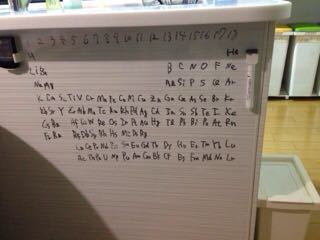 1 2 3 4 5 6 7 8 9 10 11 12 13 14 15 16 17 18
H He
Li Be B C N O F Ne
Na Mg Al Si P S Cl Ar
K Ca Sc Ti V Cr Mn Fe Co Ni Cu Zn Ga Ge As Se Br Kr
Rb Sr Y Zr Nb Mo Tc Ru Rh Pd Ag Cd In Sn Sb Te I Xe
Cs Ba Hf Ta W Re Os Ir Pt Au Hg Tl Pb Bi Po At Rn
Fr Ra Rf Db Sg Bh Hs Mt Ds Rg
La Ce Pr Nd Pm Sm Eu Gd Tb Dy Ho Er Tm Yb Lu
Ac Th Pa U Np Pu Am Cm Bk Cf Es Fm Md No Lr